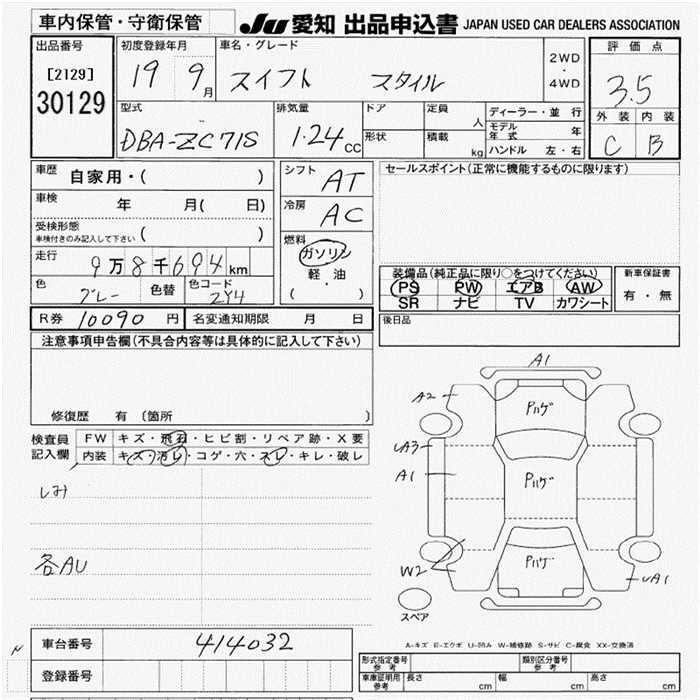 車内保管・守衛保管
JU 愛知 出品申込書 JAPAN USED CAR DEALERS ASSOCIATION
出品番号
[2129]
30129
初度登録年月
19 9月
車名・グレード
スイフト スタイル
2WD
・
4WD
評価点
3.5
外装 内装
C B
型式
DBA-ZC71S
排気量
1.24cc
ドア
形状
定員 人
積載 kg
ディーラー・並行
モデル年式 年
ハンドル 左・右
車歴 自家用・( )
車検 年 月( 日)
受検形態
車検付きのみ記入して下さい ( )
走行 9万8千694km
色 グレー 色替
色コード ZY4
シフト AT
冷房 AC
燃料
ガソリン
軽油
( ・ )
セールスポイント(正常に機能するものに限ります)
装備品(純正品に限り○をつけてください)
PS PW エアB AW
SR ナビ TV カワシート
新車保証書
有・無
後日品
R券 10090円 名変通知期限 月 日
注意事項申告欄(不具合内容等は具体的に記入して下さい)
修復歴 有〔箇所 〕
検査員記入欄
FW キズ・飛石・ヒビ割・リペア跡・X要
内装 キズ・汚レ・コゲ・穴・スレ・キレ・破レ
しみ
各AU
A1
A2
Pハゲ
UA3
A1
Pハゲ
W2
Pハゲ
UA1
スペア
A-キズ E-エクボ U-凹み W-補修跡 S-サビ C-腐食 XX-交換済
車台番号 414032
登録番号
形式指定番号 参考
類別区分番号 参考
車庫証明用 参考 長さ cm 幅 cm 高さ cm